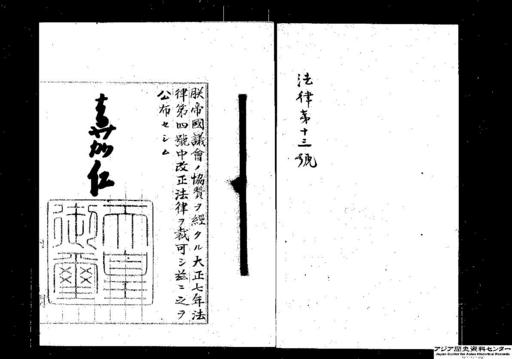 法律第十三號
朕帝國議會ノ協賛ヲ經タル大正七年法
律第四號中改正法律ヲ裁可シ茲ニ之ヲ
公布セシム
嘉仁
天皇
御璽
アジア歴史資料センター
Japan Center for Asian Historical Records